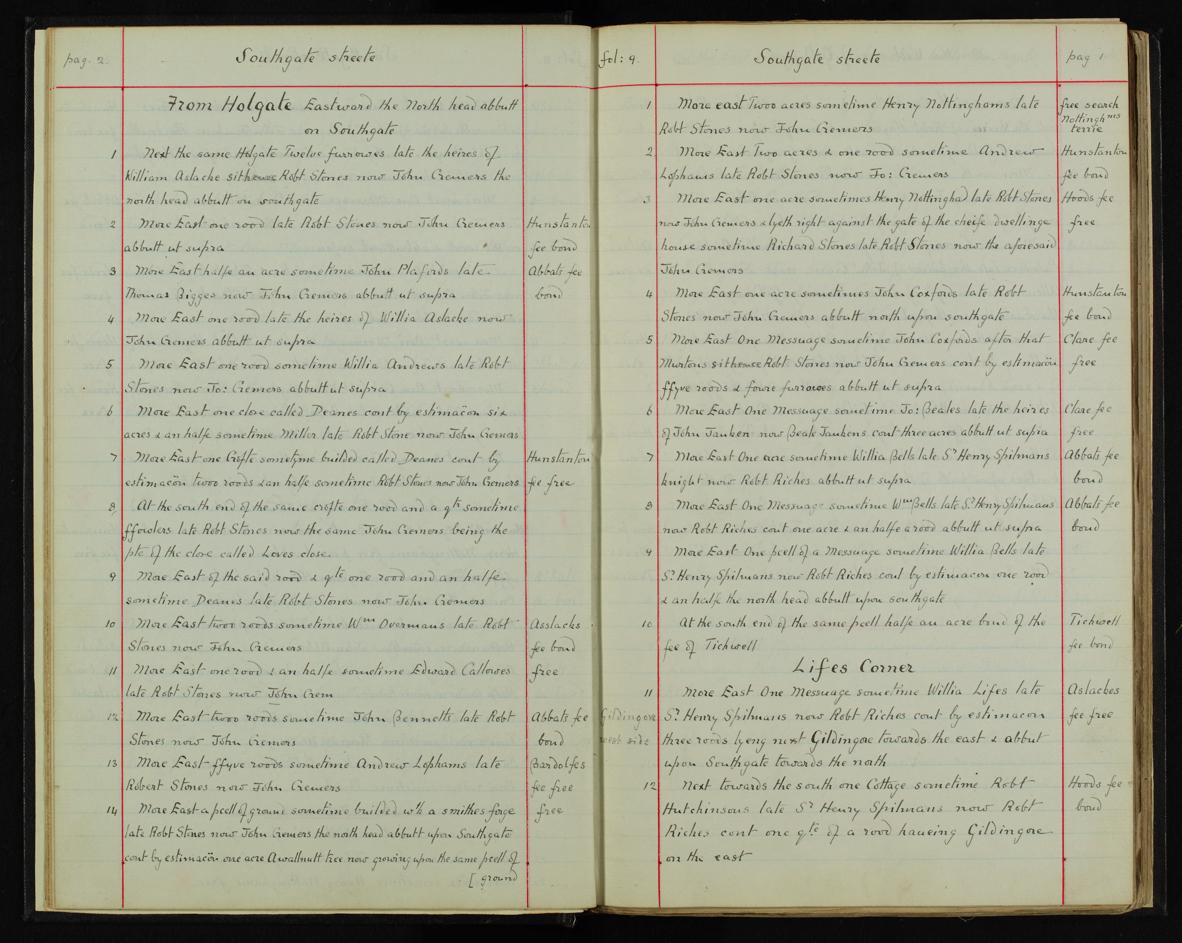 pag. 2.
Southgate streete
From Holgate Eastward the North head abbutt
on Southgate
1 Next the same Holgate Twelve furrowes late the heires of
William Aslacke sithence Robt Stones now John Cremers the
north head abbutt on southgate
2 More East one rood late Robt Stones now John Cremers
abbutt ut supra
Hunstanton
fee bond
3 More East halfe an acre sometime John Plafords late
Thomas Bigges now John Cremers abbutt ut supra
Abbats fee
bond
4 More East one rood late the heires of Willia Aslacke now
John Cremers abbutt ut supra
5 More East one rood sometime Willia Andrews late Robt
Stones now Jo: Cremers abbutt ut supra
6 More East one close called Deanes cont by estimacōn six
acres & an halfe sometime Miller late Robt Stone now John Cremers
7 More East one Crofte sometyme builded called Deanes cont by
estimacōn twoo roods & an halfe sometime Robt Stones now John Cremers
Hunstanton
fee free
8 At the south end of the same crofte one rood and a qt sometime
ffowlers late Robt Stones now the same John Cremers being the
pte of the close called Loves close.
9 More East of the said rood & qte one rood and an halfe
sometime Deanes late Robt Stones now John Cremers
10 More East twoo roods sometime Wm Overmans late Robt
Stones now John Cremers
Asslacks
fee bond
11 More East one rood & an halfe sometime Edward Callowes
late Robt Stones now John Crem
free
12 More East twoo roods sometime John Bennetts late Robt
Stones now John Cremers
Abbats fee
bond
13 More East ffyve roods sometime Andrew Lophams late
Robert Stones now John Cremers
Bardolfes
fee free
14 More East a pcell of ground sometime builded wth a smithes forge
late Robt Stones now John Cremers the north head abbutt upon Southgate
cont by estimacōn one acre A wallnutt tree now growing upon the same pcell of
[ground
free
fol: 9.
Southgate streete
pag 1
1 More east Twoo acres sometime Henry Nottinghams late
Robt Stones now John Cremers
free search
Nottinghms
terrie
2 More East Two acres & one rood sometime Andrew
Lophams late Robt Stones now Jo: Cremers
Hunstanton
fee bond
3 More East one acre sometimes Henry Nottinghad late Robt Stones
now John Cremers & lyeth right against the gate of the cheife dwellinge
house sometime Richard Stones late Robt Stones now the aforesaid
John Cremers
Hoods fee
free
4 More East one acre sometimes John Coxfords late Robt
Stones now John Cremers abbutt north upon southgate
Hunstanton
fee bond
5 More East One Messuage sometime John Coxfords after that
Murtons sithence Robt Stones now John Cremers cont by estimacōn
ffyve roods & foure furrowes abbutt ut supra
Clare fee
free
6 More East One Messuage sometime Jo: Beales late the heires
of John Tanken now Beale Tankens cont three acres abbutt ut supra
Clare fee
free
7 More East One acre sometime Willia Bells late Sr Henry Spilmans
knight now Robt Riches abbutt ut supra
Abbats fee
bond
8 More East One Messuage sometime Wm Bells late Sr Henry Spilmans
now Robt Riches cont one acre & an halfe a rood abbutt ut supra
Abbats fee
bond
9 More East One pcell of a Messuage sometime Willia Bells late
Sr Henry Spilmans now Robt Riches cont by estimacon one rood
& an halfe the north head abbutt upon southgate
10 At the south end of the same pcell halfe an acre bond of the
fee of Tichwell
Tichwell
fee bond
Lifes Corner
11 More East One Messuage sometime Willia Lifes late
Sr Henry Spilmans now Robt Riches cont by estimacon
three roods lyeng next Gildingore towards the east & abbut
upon Southgate towards the north
Aslackes
fee free
Gildingore
west side
12 Next towards the south one Cottage sometime Robt
Hutchinsons late Sr Henry Spilmans now Robt
Riches cont one qte of a rood haueing Gildingore
on the east
Hoods fee
bond